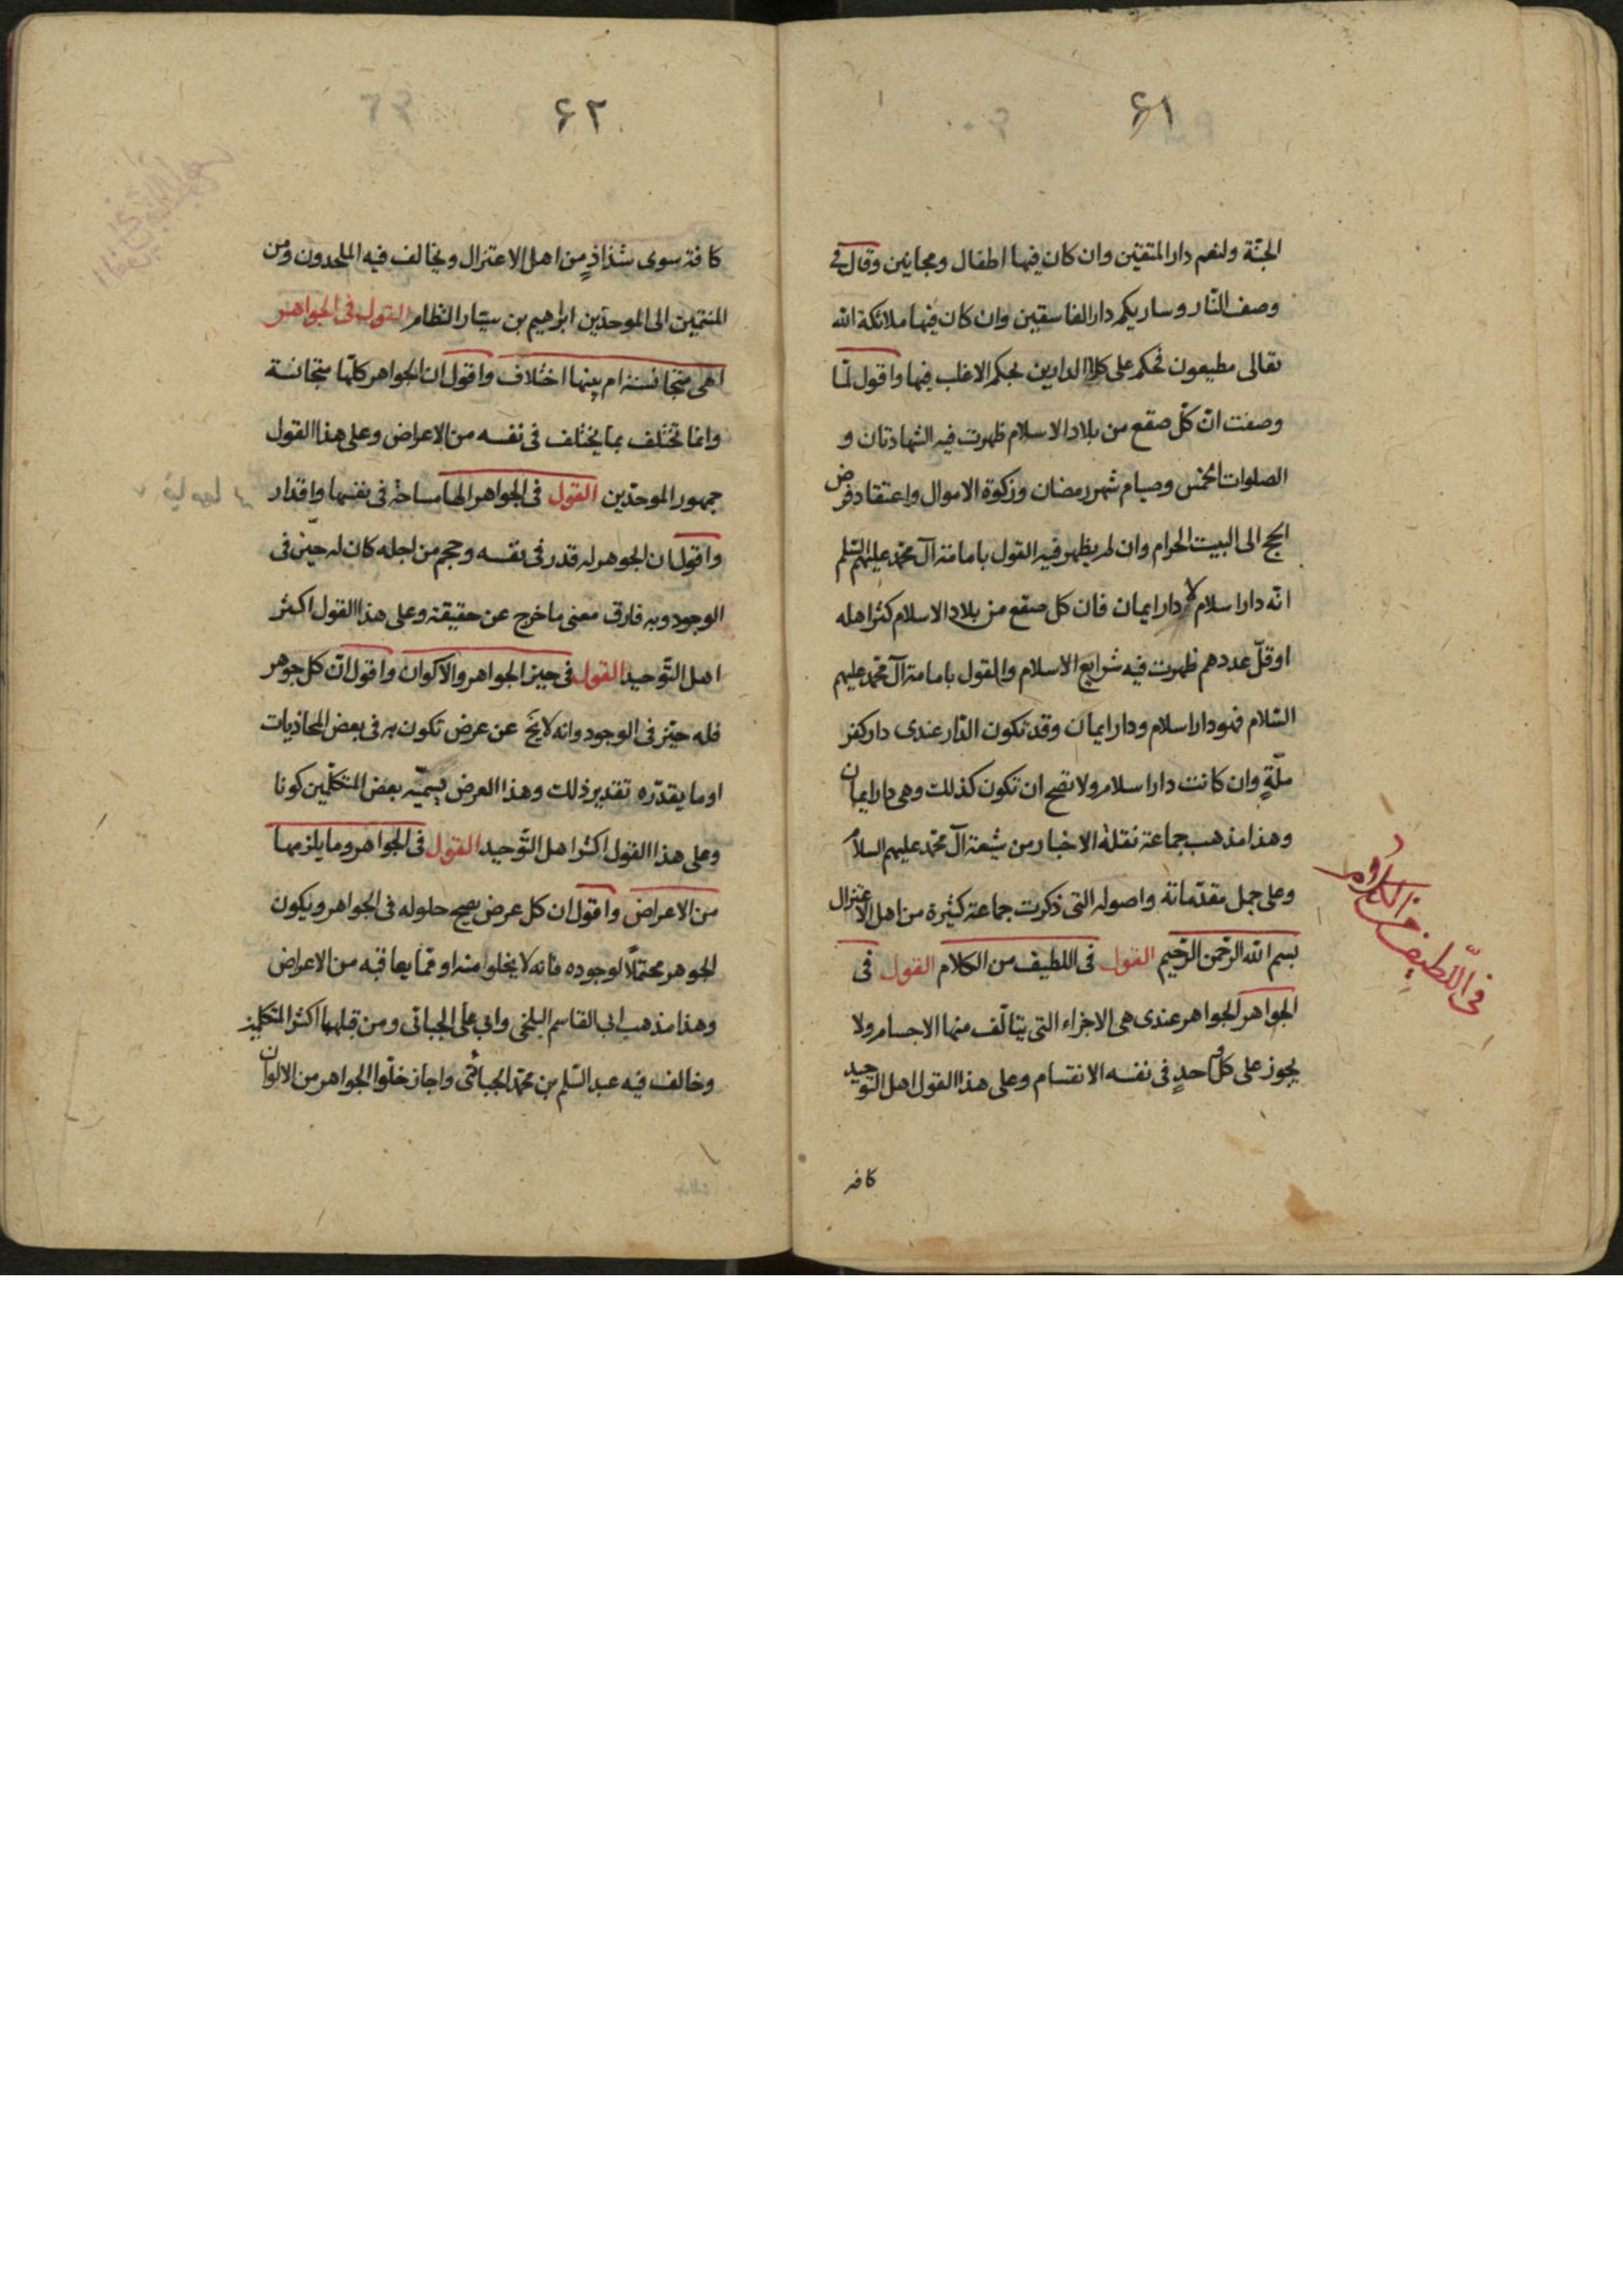 ۶۱
الجنّة ولنعم دار المتقين وان كان فيها اطفال ومجانين وقال في
وصف النّار وساريكم دار الفاسقين وان كان فيها ملائكة الله
تعالى مطيعون فحكم على كلا الدارين بحكم الاغلب فيها واقول لمّا
وصفت انّ كلّ صقع من بلاد الاسلام ظهرت فيه الشهادتان و
الصلوات الخمس وصيام شهر رمضان وزكوة الاموال واعتقاد فرض
الحج الى البيت الحرام وان لم يظهر فيه القول بامامة آل محمّد عليهم السّلم
انّه دار اسلام لا دار ايمان فان كل صقع من بلاد الاسلام كثر اهله
او قلّ عددهم ظهرت فيه شرايع الاسلام والقول بامامة آل محمّد عليهم
السّلام فهو دار اسلام ودار ايمان وقد تكون الدّار عندى دار كفر
ملّةٍ وان كانت دار اسلام ولا تصح ان تكون كذلك وهى دار ايمان
وهذا مذهب جماعة نقلة الاخبار من شيعة آل محمّد عليهم السلام
وعلى جمل مقدّماته واصوله التى ذكرت جماعة كثيرة من اهل الاعتزال
بسم الله الرّحمن الرّحيم القول فى اللطيف من الكلام القول فى
الجواهر الجواهر عندى هى الاجزاء التى يتألّف منها الاجسام ولا
يجوز على كل واحدٍ فى نفسه الانقسام وعلى هذا القول اهل التّوحيد
كافه
فى اللّطيف من الكلام
۶۲
كافة سوى شذاذٍ من اهل الاعتزال ويخالف فيه الملحدون ومن
المنتمين الى الموحدّين ابرهيم بن سيّار النظام القول فى الجواهر
اهى متجانسة ام بينها اختلاف واقول ان الجواهر كلّها متجانسة
وانما تختلف بما يختلف فى نفسه من الاعراض وعلى هذا القول
جمهور الموحدّين القول فى الجواهر الها مساحة فى نفسها واقدار
واقول ان الجوهر له قدر فى نفسه وحجم من اجله كان له حيّز فى
الوجود وبه فارق معنى ما خرج عن حقيقته وعلى هذا القول اكثر
اهل التّوحيد القول فى حيز الجواهر والاكوان واقول انّ كل جوهر
فله حيّز فى الوجود وانه لا يخ عن عرض تكون به فى بعض المحاذيات
او ما يقدّره تقدير ذلك وهذا العرض يسمّيه بعض المتكلّمين كونا
وعلى هذا القول اكثر اهل التّوحيد القول فى الجواهر وما يلزمها
من الاعراض واقول ان كل عرض يصح حلوله فى الجواهر ويكون
الجوهر محتملًا لوجوده فانه لا يخلوا منه او ممّا يعاقبه من الاعراض
وهذا مذهب ابى القاسم البلخى وابى على الجبائى ومن قبلهما اكثر المتكلمين
وخالف فيه عبد السّلم بن محمّد الجبائى واجاز خلوّا الجواهر من الالوان